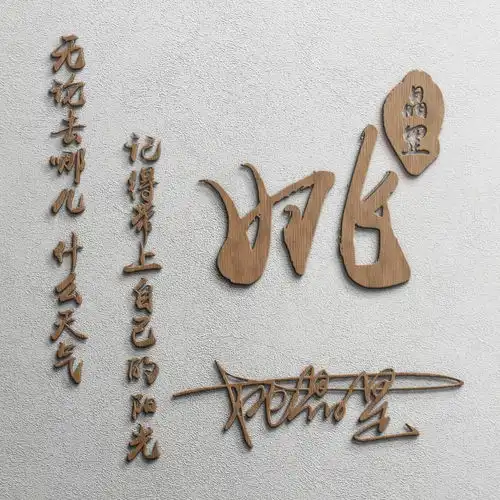 无论去哪儿 什么天气
记得带上自己的阳光
姚
晶